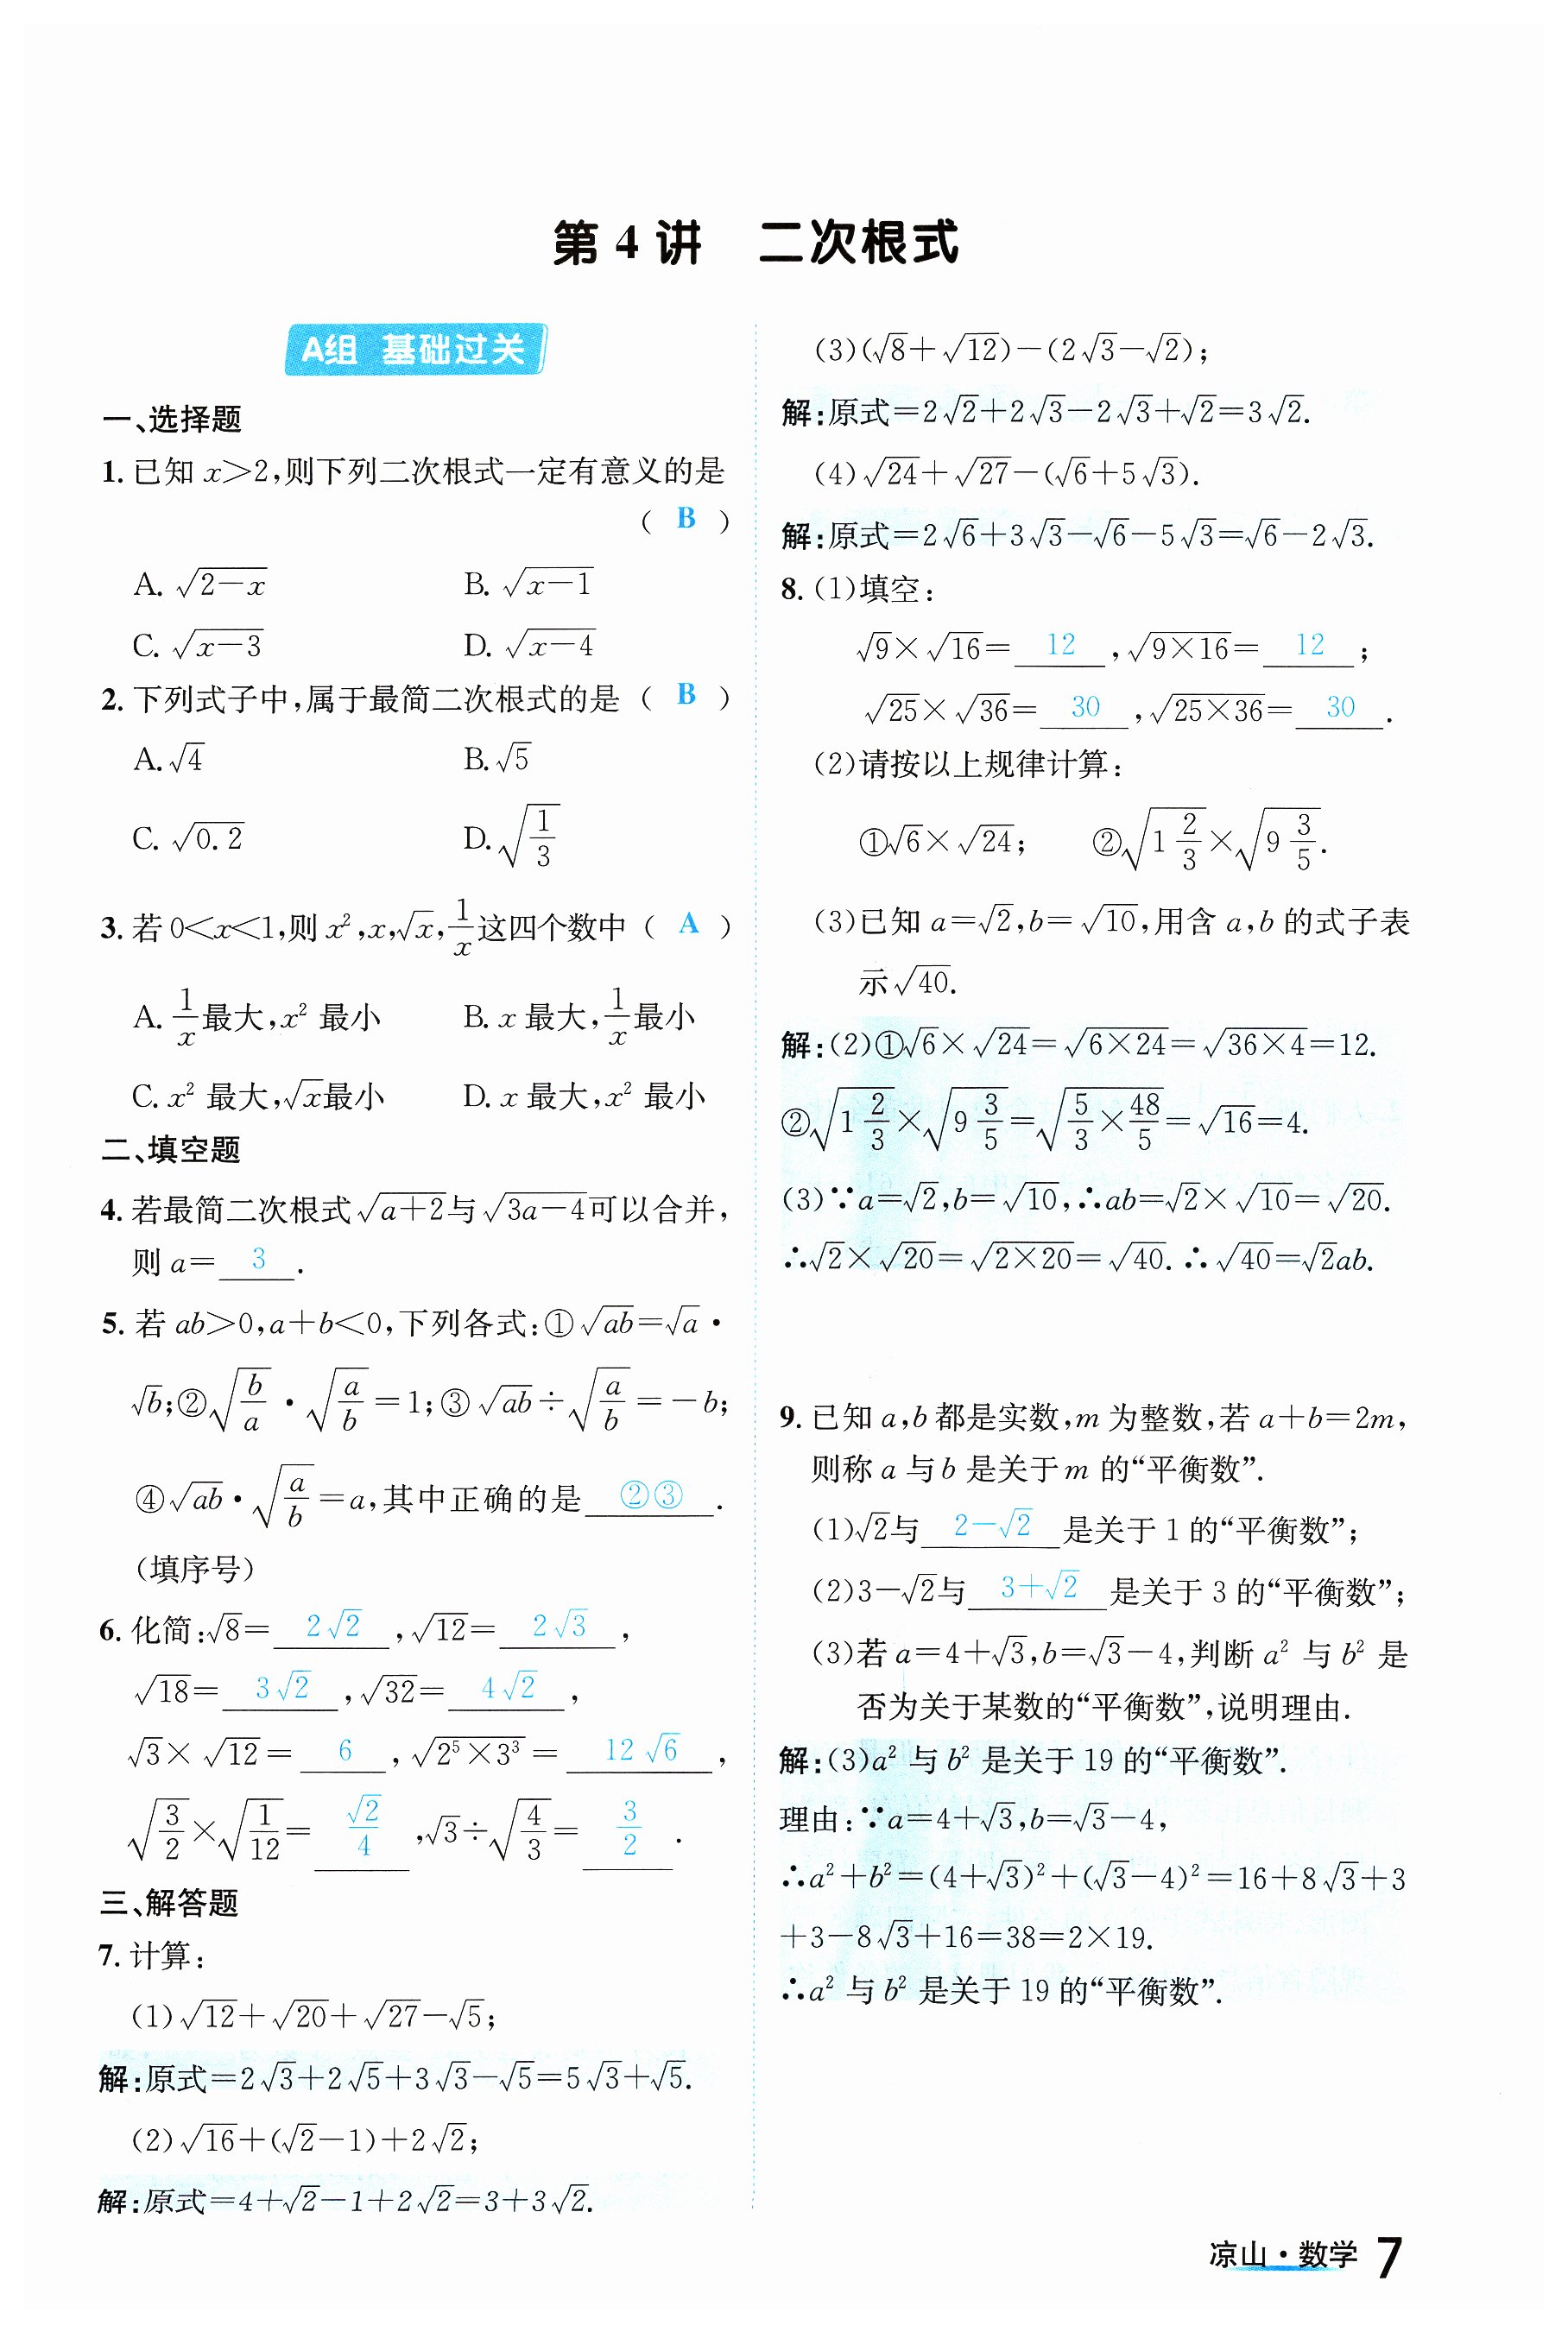 第 4 讲 二次根式
A组 基础过关
一、选择题
1. 已知 x>2,则下列二次根式一定有意义的是
( B )
A. √(2-x) B. √(x-1)
C. √(x-3) D. √(x-4)
2. 下列式子中,属于最简二次根式的是 ( B )
A. √4 B. √5
C. √0.2 D. √(1/3)
3. 若 0<x<1,则 x²,x,√x,1/x 这四个数中 ( A )
A. 1/x 最大,x² 最小 B. x 最大,1/x 最小
C. x² 最大,√x 最小 D. x 最大,x² 最小
二、填空题
4. 若最简二次根式 √(a+2) 与 √(3a-4) 可以合并,
则 a= 3 .
5. 若 ab>0,a+b<0,下列各式:① √(ab)=√a·
√b;② √(b/a)·√(a/b)=1;③ √(ab)÷√(a/b)=-b;
④ √(ab)·√(a/b)=a,其中正确的是 ②③ .
(填序号)
6. 化简:√8= 2√2 ,√12= 2√3 ,
√18= 3√2 ,√32= 4√2 ,
√3×√12= 6 ,√(2⁵×3³)= 12√6 ,
√(3/2)×√(1/12)= √2/4 ,√3÷√(4/3)= 3/2 .
三、解答题
7. 计算:
(1)√12+√20+√27-√5;
解:原式=2√3+2√5+3√3-√5=5√3+√5.
(2)√16+(√2-1)+2√2;
解:原式=4+√2-1+2√2=3+3√2.
(3)(√8+√12)-(2√3-√2);
解:原式=2√2+2√3-2√3+√2=3√2.
(4)√24+√27-(√6+5√3).
解:原式=2√6+3√3-√6-5√3=√6-2√3.
8. (1)填空:
√9×√16= 12 ,√(9×16)= 12 ;
√25×√36= 30 ,√(25×36)= 30 .
(2)请按以上规律计算:
①√6×√24; ②√(1 2/3)×√(9 3/5).
(3)已知 a=√2,b=√10,用含 a,b 的式子表
示√40.
解:(2)①√6×√24=√(6×24)=√(36×4)=12.
②√(1 2/3)×√(9 3/5)=√(5/3×48/5)=√16=4.
(3)∵a=√2,b=√10,∴ab=√2×√10=√20.
∴√2×√20=√(2×20)=√40. ∴√40=√2ab.
9. 已知 a,b 都是实数,m 为整数,若 a+b=2m,
则称 a 与 b 是关于 m 的“平衡数”.
(1)√2与 2-√2 是关于 1 的“平衡数”;
(2)3-√2与 3+√2 是关于 3 的“平衡数”;
(3)若 a=4+√3,b=√3-4,判断 a² 与 b² 是
否为关于某数的“平衡数”,说明理由.
解:(3)a² 与 b² 是关于 19 的“平衡数”.
理由:∵a=4+√3,b=√3-4,
∴a²+b²=(4+√3)²+(√3-4)²=16+8√3+3
+3-8√3+16=38=2×19.
∴a² 与 b² 是关于 19 的“平衡数”.
凉山·数学 7